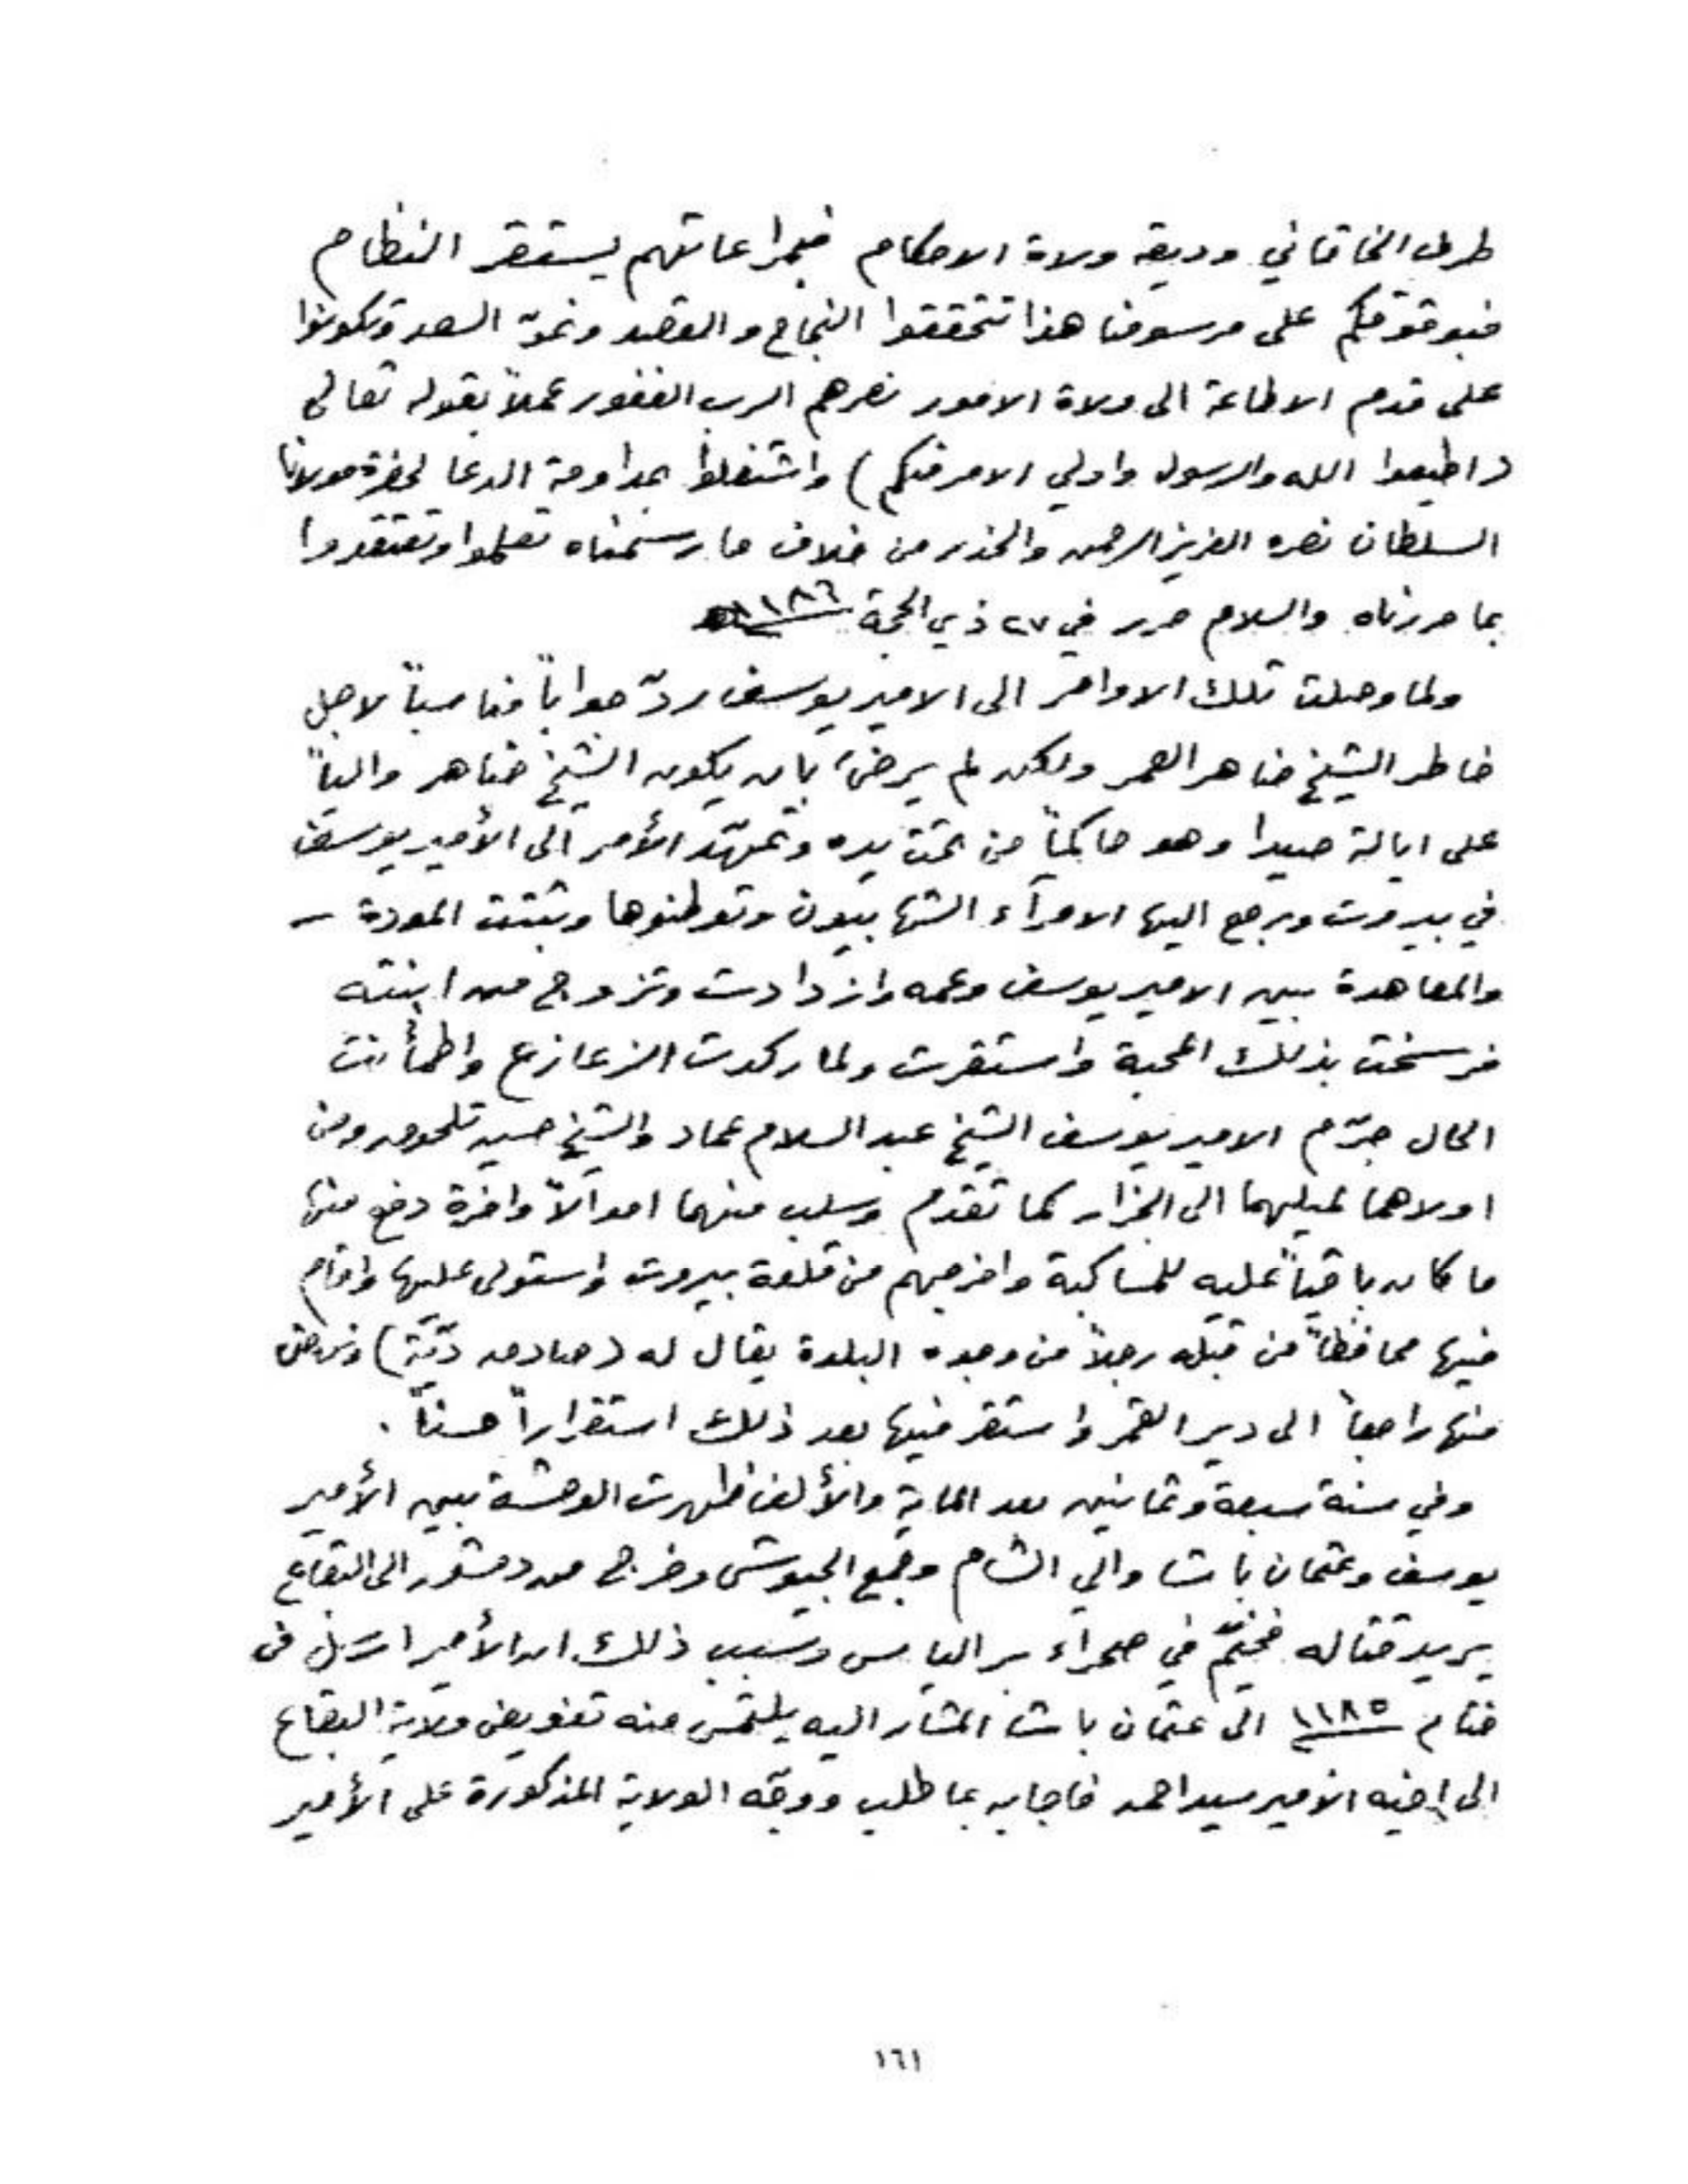 طرف الخاقاني وديقه ولاة الاحكام فبمراعاتهم يستقر النظام
فبوقوفكم على مرسومنا هذا تتحققوا النجاح والقصد ونموّ السعد وتكونوا
على قدم الاطاعة الى ولاة الامور نصرهم الرب الغفور عملاً بقوله تعالى
(اطيعوا الله والرسول واولي الامر منكم) واشتغلوا بمداومة الدعا لحضرة مولانا
السلطان نصره العزيز الرحمن والحذر من خلاف ما رسمناه تعلموا وتعتقدوا
بما حررناه والسلام حرر في ٢٧ ذي الحجة ١١٨٦
ولما وصلت تلك الاوامر الى الامير يوسف ردّ جواباً مناسباً لاجل
خاطر الشيخ ضاهر العمر ولكن لم يرضَ بان يكون الشيخ ضاهر والياً
على ايالة صيدا وهو حاكماً من تحت يده وتمهّد الأمر الى الأمير يوسف
في بيروت ورجع اليها الامرآء الشهابيون وتوطنوها وثبتت المودة –
والمعاهدة بين الامير يوسف وعمه وازدادت وتزوج من ابنته
فرسخت بذلك المحبة واستقرت ولما ركدت الزعازع واطمأنت
الحال جرّم الامير يوسف الشيخ عبد السلام عماد والشيخ حسين تلحوق ومن
اولاهما لميلهما الى الجزار كما تقدم وسلب منهما اموالاً وافرة دفع منها
ما كان باقياً عليه للمساكبة واخرجهم من قلعة بيروت واستولى عليها واقام
فيها محافظاً من قبله رجلاً من وجوه البلدة يقال له (صادق دنّة) ونهض
منها راجعاً الى دير القمر واستقر فيها بعد ذلك استقراراً حسناً .
وفي سنة سبعة وثمانين بعد الماية والألف ظهرت الوحشة بين الأمير
يوسف وعثمان باشا والي الشام وجمع الجيوش وخرج من دمشق الى البقاع
يريد قتاله فخيّم في صحراء بر الياس وسبب ذلك ان الأمير ارسل في
ختام ١١٨٥ الى عثمان باشا المشار اليه يلتمس منه تفويض ولاية البقاع
الى اخيه الامير سيد احمد فاجابه بما طلب ووجّه الولاية المذكورة على الأمير
١٦١